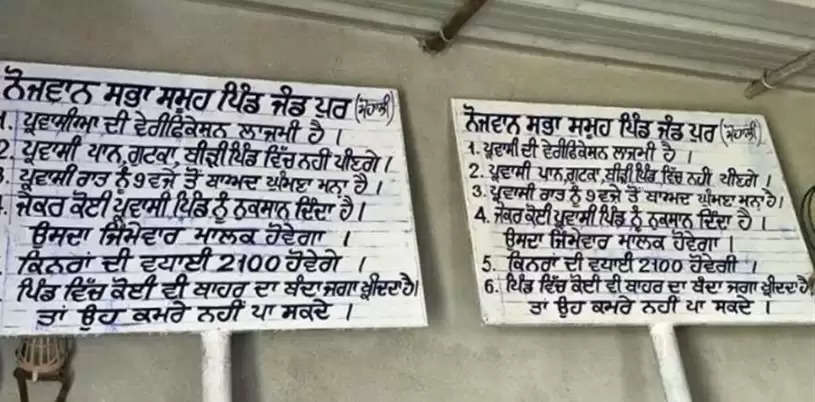 ਨੌਜਵਾਨ ਸਭਾ ਸਮੂਹ ਪਿੰਡ ਜੰਡ ਪੁਰ (ਮੋਹਾਲੀ)
1. ਪ੍ਰਵਾਸੀਆ ਦੀ ਵੇਰੀਫਿਕੇਸਨ ਲਾਜਮੀ ਹੈ ।
2. ਪ੍ਰਵਾਸੀ ਪਾਨ, ਗੁਟਕਾ, ਬੀੜੀ ਪਿੰਡ ਵਿੱਚ ਨਹੀ ਪੀਣਗੇ ।
ਪ੍ਰਵਾਸੀ ਰਾਤ ਨੂੰ 9 ਵਜੇ ਤੋਂ ਬਾਅਦ ਘੁੰਮਣਾ ਮਨਾ ਹੈ ।
ਜੇਕਰ ਕੋਈ ਪ੍ਰਵਾਸੀ ਪਿੰਡ ਨੂੰ ਨਕਸਾਨ ਦਿੰਦਾ ਹੈ ।
ਉਸਦਾ ਜਿੰਮੇਵਾਰ ਮਾਲਕ ਹੋਵੇਗਾ ।
ਕਿਨਰਾਂ ਦੀ ਵਧਾਈ 2100 ਹੋਵੇਗੇ ।
ਪਿੰਡ ਵਿੱਚ ਕੋਈ ਵੀ ਬਾਹਰ ਦਾ ਬੰਦਾ ਜਗਾ ਖ੍ਰੀਦਦਾ ਹੈ।
ਤਾਂ ਉਹ ਕਮਰੇ ਨਹੀਂ ਪਾ ਸਕਦੇ ।
ਨੌਜਵਾਨ ਸਭਾ ਸਮੂਹ ਪਿੰਡ ਜੰਡ ਪੁਰ (ਮੋਹਾਲੀ)
1. ਪ੍ਰਵਾਸੀ ਦੀ ਵੇਰੀਫਿਕੇਸਨ ਲਾਜਮੀ ਹੈ ।
2. ਪ੍ਰਵਾਸੀ ਪਾਨ, ਗੁਟਕਾ, ਬੀੜੀ ਪਿੰਡ ਵਿੱਚ ਨਹੀ ਪੀਣਗੇ ।
3. ਪ੍ਰਵਾਸੀ ਰਾਤ ਨੂੰ 9 ਵਜੇ ਤੋਂ ਬਾਅਦ ਘੁੰਮਣਾ ਮਨਾ ਹੈ।
4. ਜੇਕਰ ਕੋਈ ਪ੍ਰਵਾਸੀ ਪਿੰਡ ਨੂੰ ਨਕਸਾਨ ਦਿੰਦਾ ਹੈ ।
ਉਸਦਾ ਜਿੰਮੇਵਾਰ ਮਾਲਕ ਹੋਵੇਗਾ ।
5. ਕਿਨਰਾਂ ਦੀ ਵਧਾਈ 2100 ਹੋਵੇਗੀ ।
6. ਪਿੰਡ ਵਿੱਚ ਕੋਈ ਵੀ ਬਾਹਰ ਦਾ ਬੰਦਾ ਜਗਾ ਖ੍ਰੀਦਦਾ ਹੈ
ਤਾਂ ਉਹ ਕਮਰੇ ਨਹੀਂ ਪਾ ਸਕਦੇ ।